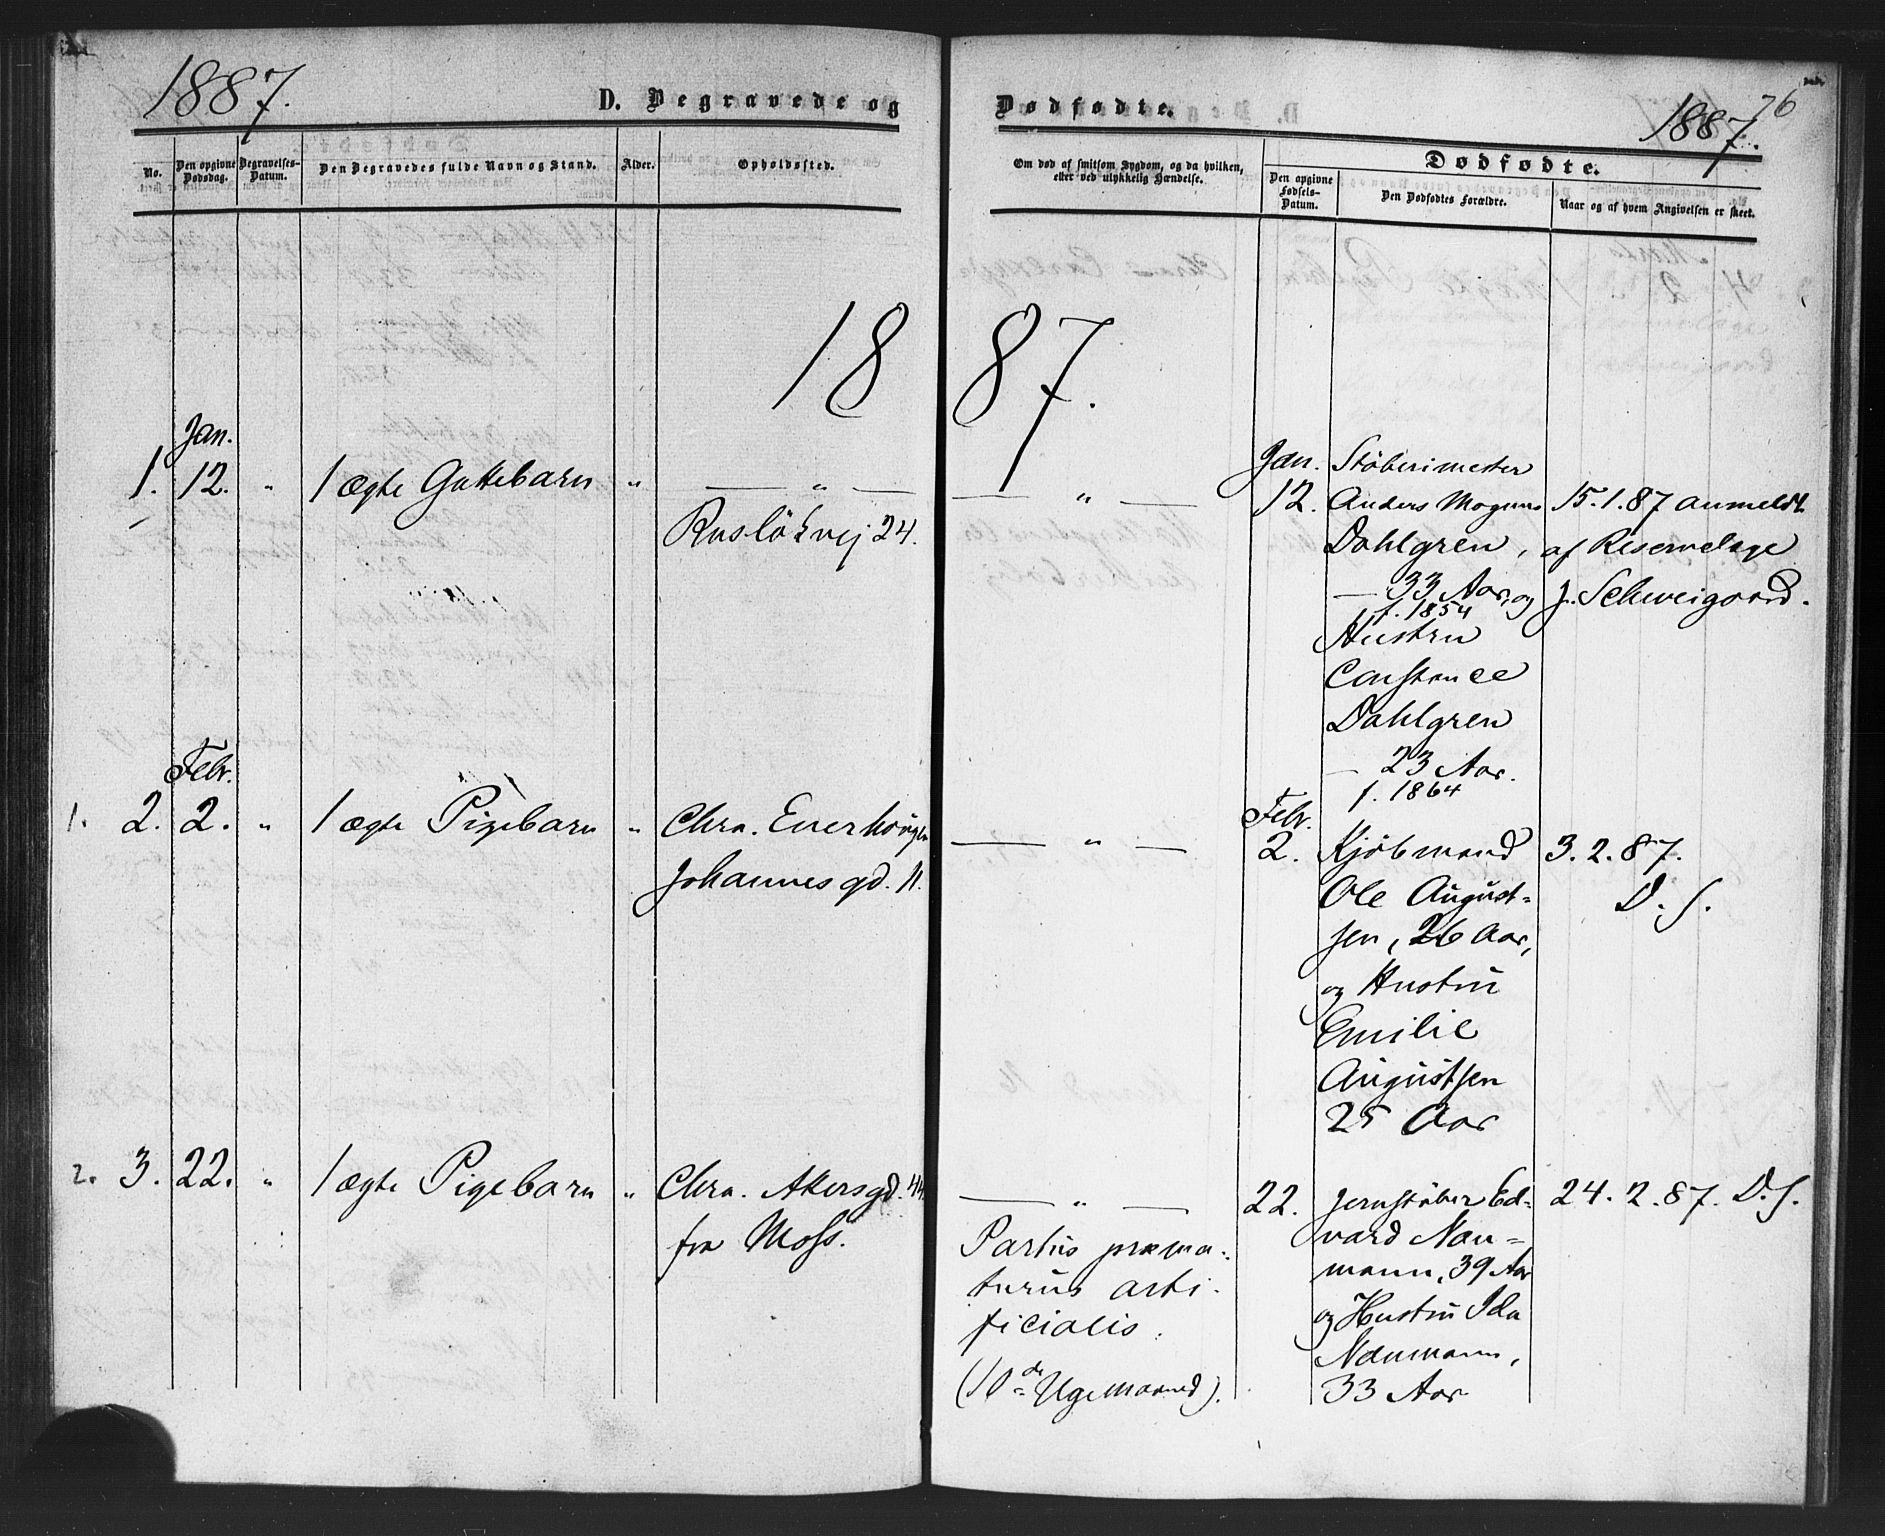 1887.
D. Begravede og
No.
Den opgivne Dødsdag.
Begravelses-Datum.
Den Begravedes fulde Navn og Stand.
Alder.
Opholdssted.
18
Jan.
1. 12. " 1 ægte Guttebarn " — " —
Rusløkvej 24.
Febr.
1. 2. 2. " 1 ægte Pigebarn " Chra.
Johannesgd. 11.
2. 3. 22. " 1 ægte Pigebarn " Chra. Akersgd. 44
fra Moss.
Dødfødte.
76
1887.
Om død af smitsom Sygdom, og da hvilken,
eller ved ulykkelig Hændelse.
Dødfødte.
Den opgivne Fødsels-Datum.
Den Dødfødtes Forældre.
Naar og af hvem Angivelsen er skeet.
87.
Jan. Støberimester
— " — 12. Anders Mogens 15.1.87 anmeldt
Dahlgren, af Reservelæge
— 33 Aar, og J. Schweigaard.
f. 1854
Hustru
Constance
Dahlgren
— 23 Aar.
f. 1864
Febr.
— " — 2. Kjøbmand 3.2.87.
Ole August- D. S.
sen, 26 Aar,
og Hustru
Emilie
Augustsen
25 Aar
— " — 22. Jernstøber Ed- 24.2.87. D. S.
Partus præma- vard Nau-
turus arti- mann, 39 Aar
ficialis. og Hustru Ida
Naumann,
(10de Ugemaaned). 33 Aar